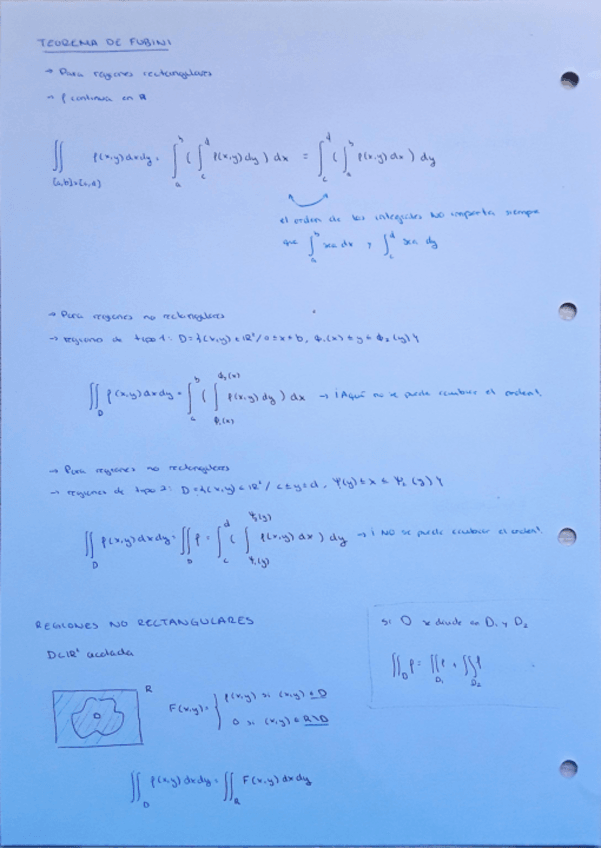 TEOREMA DE FUBINI
→ Para regiones rectangulares
→ f continua en R
∬_{[a,b]×[c,d]} f(x,y) dx dy = ∫_a^b ( ∫_c^d f(x,y) dy ) dx = ∫_c^d ( ∫_a^b f(x,y) dx ) dy
el orden de las integrales NO importa siempre
que ∫_a^b sea dx y ∫_c^d sea dy
→ Para regiones no rectangulares
→ regiones de tipo 1: D = {(x,y) ∈ ℝ² / a ≤ x ≤ b, φ₁(x) ≤ y ≤ φ₂(y)}
∬_D f(x,y) dx dy = ∫_a^b ( ∫_{φ₁(x)}^{φ₂(x)} f(x,y) dy ) dx → ¡Aquí no se puede cambiar el orden!
→ Para regiones no rectangulares
→ regiones de tipo 2: D = {(x,y) ∈ ℝ² / c ≤ y ≤ d, Ψ(y) ≤ x ≤ Ψ₂(y)}
∬_D f(x,y) dx dy = ∬_D f = ∫_c^d ( ∫_{Ψ₁(y)}^{Ψ₂(y)} f(x,y) dx ) dy → ¡NO se puede cambiar el orden!
REGIONES NO RECTANGULARES
D ⊂ ℝ² acotada
R
D
F(x,y) = { f(x,y) si (x,y) ∈ D
0 si (x,y) ∈ R\D
∬_D f(x,y) dx dy = ∬_R F(x,y) dx dy
si D se divide en D₁ y D₂
∬_D f = ∬_{D₁} f + ∬_{D₂} f